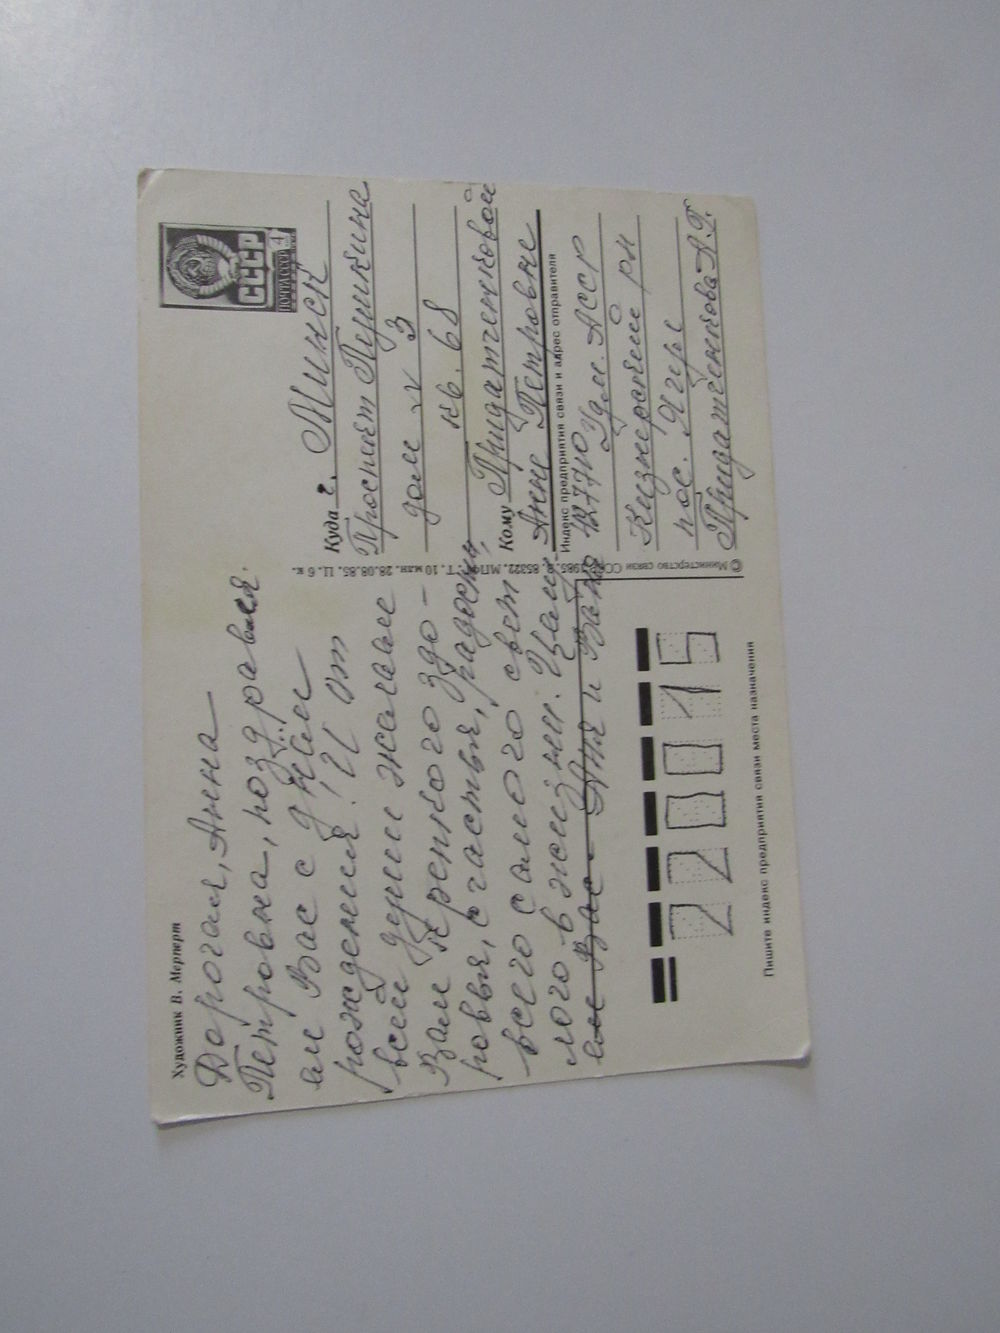 Художник В. Мерперт
Дорогая, Анна
Петровна, поздравля-
ем Вас с днем
рождения! И от
всей души желаем
Вам крепкого здо-
ровья, счастья, радости,
всего самого свет
лого в жизни. Цалу-
ем Вас - Аня и Ваня
ПОЧТА СССР
4
СССР
Куда г. Минск
Проспект Пушкина
дом № 3
кв. 68
Кому Придатченковой
Анне Петровне
Индекс предприятия связи и адрес отправителя
427710 Удм. АССР
Кизнерский рн
пос. Ягул
Придатченкова А.Г.
© Министерство связи СССР, 1985. З. 85322. МПФГ. Т. 10 млн. 28.08.85. Ц. 6 к.
220015
Пишите индекс предприятия связи места назначения